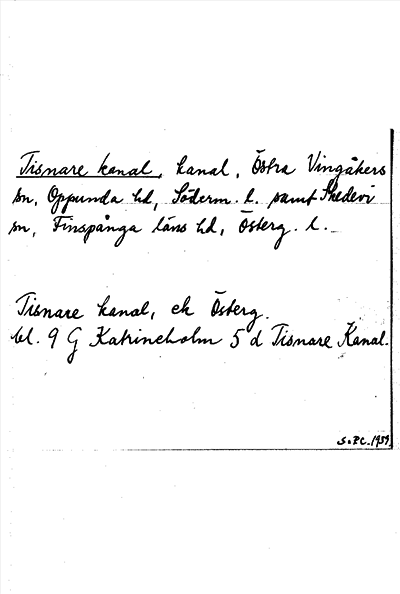 Tisnare kanal, kanal, Östra Vingåkers
sn, Oppunda hd, Söderm. l. samt Skedevi
sn, Finspånga läns hd, Österg. l.
Tisnare kanal, ek Österg.
bl. 9 G Katrineholm 5 d Tisnare Kanal.
1959